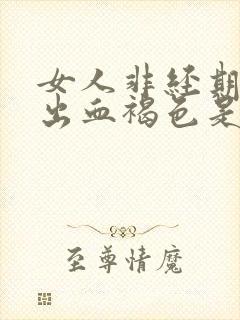 女人非经期
出血褐色是
至尊情魔